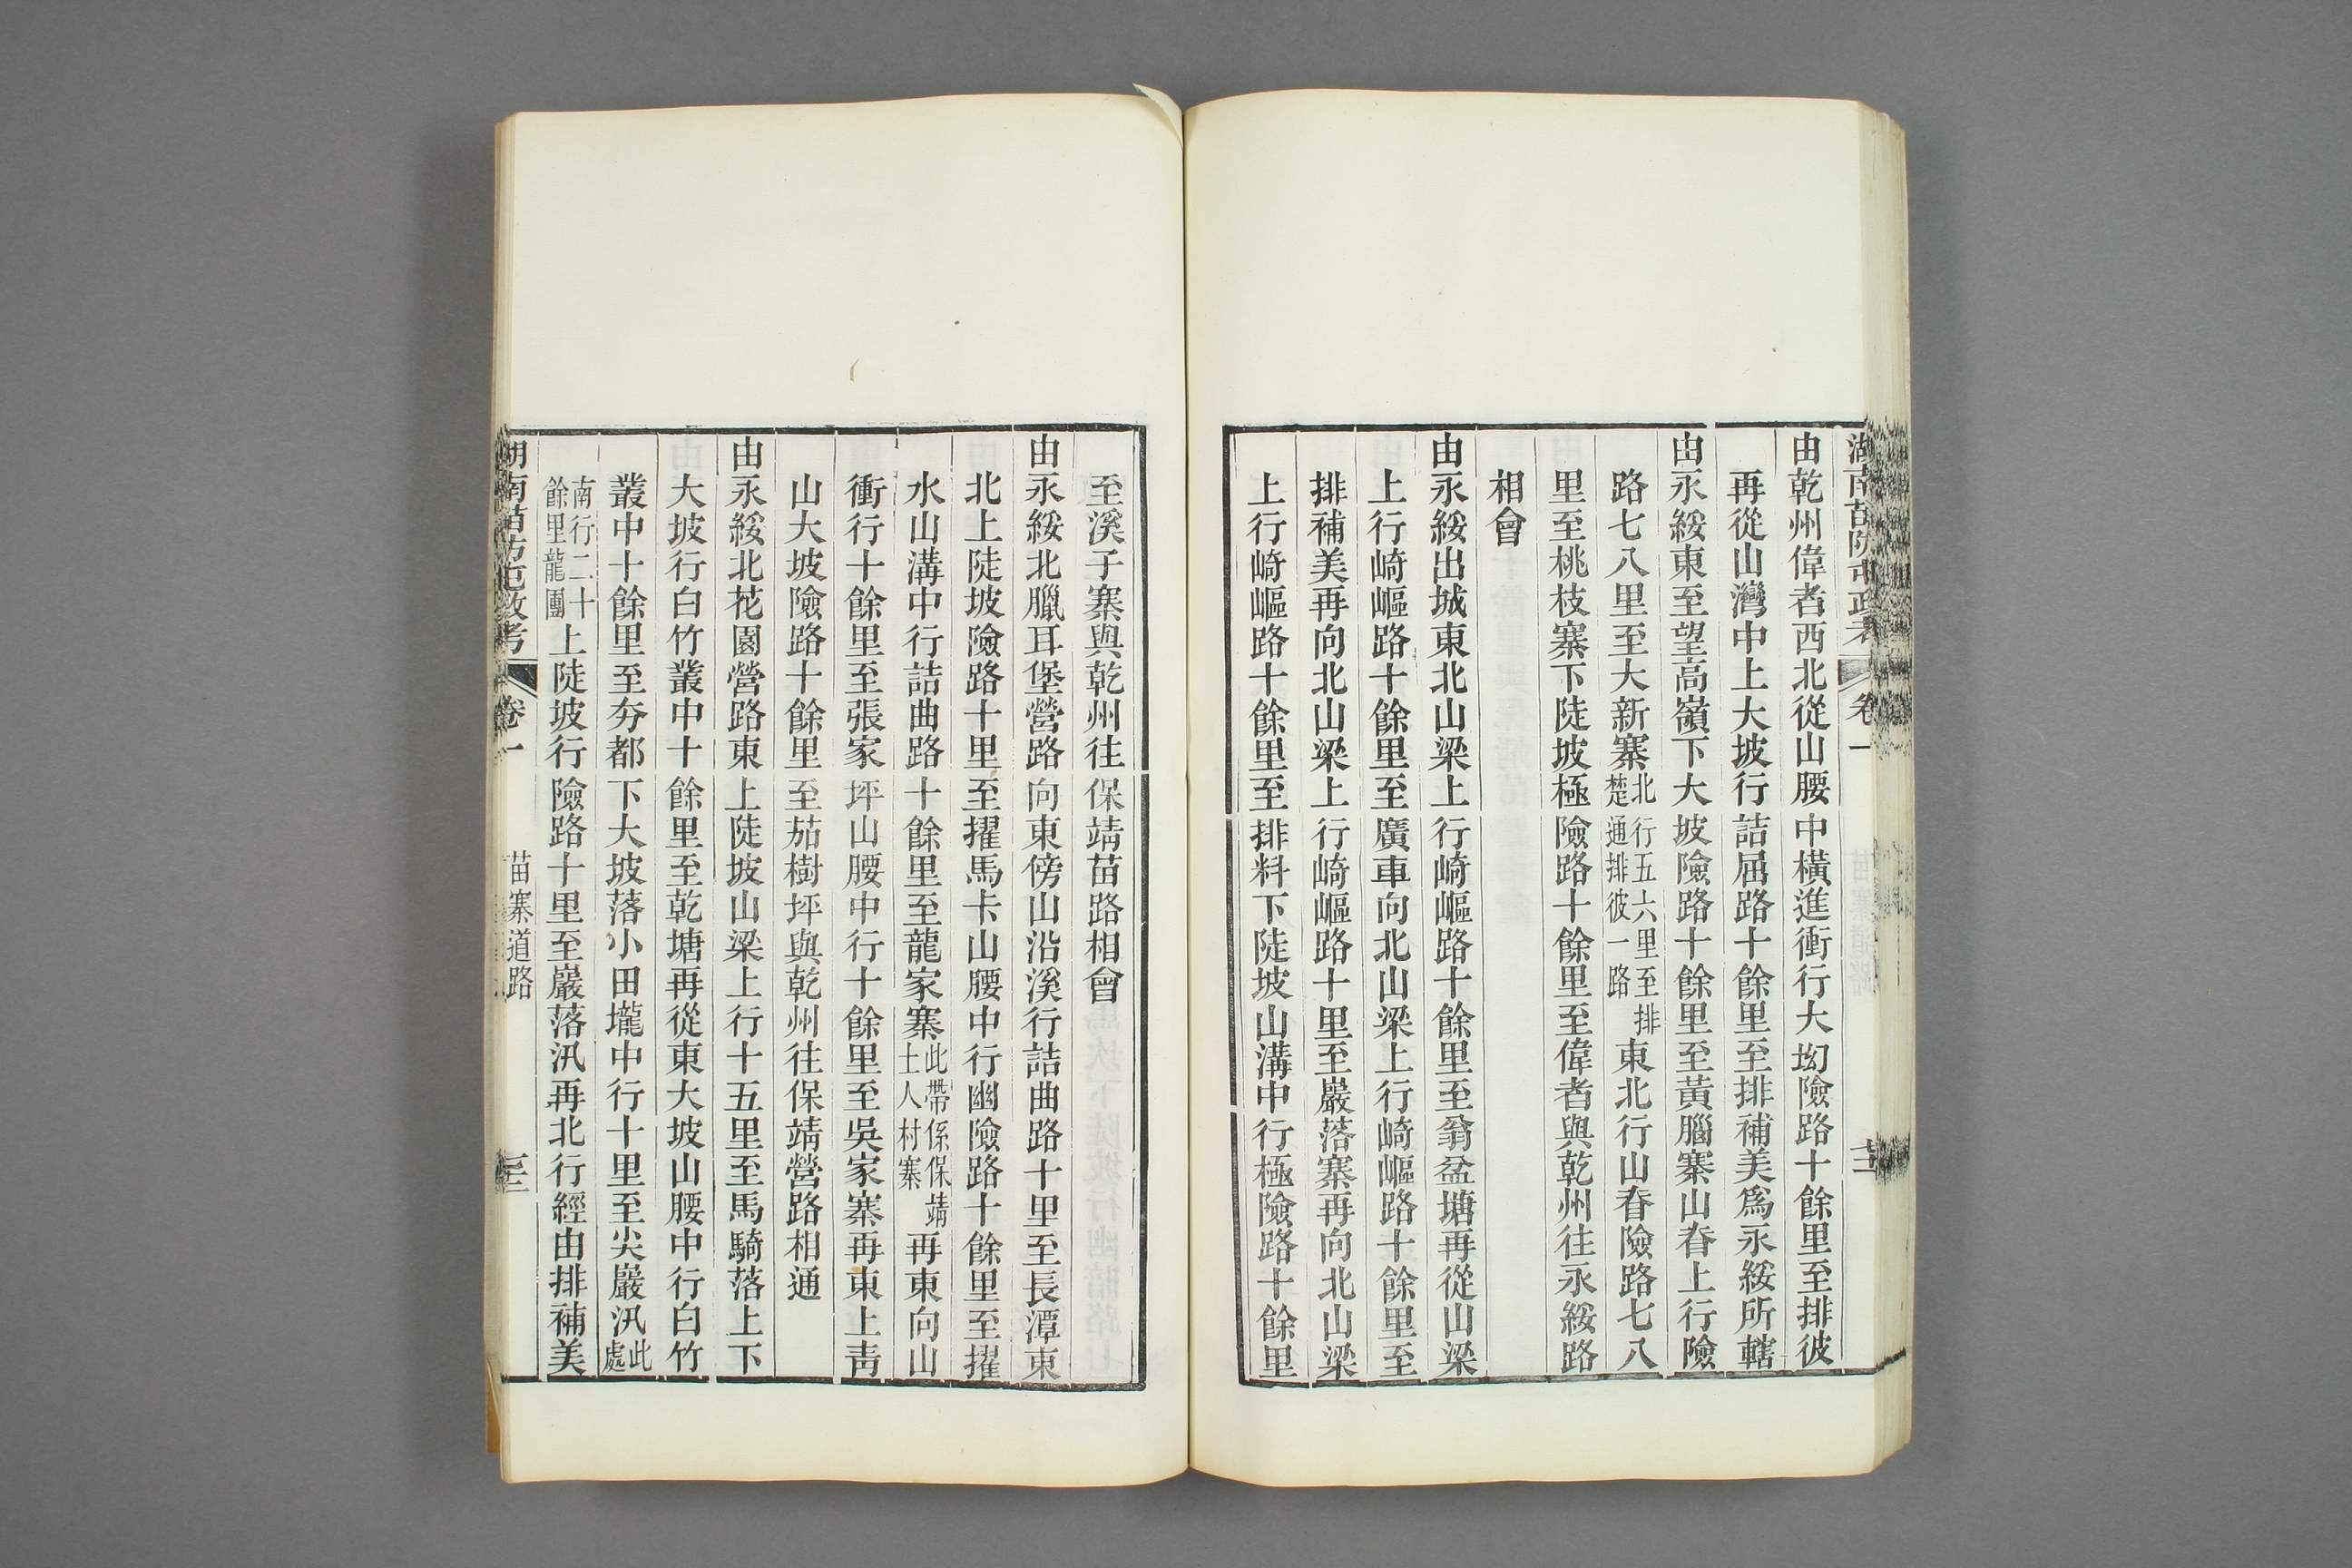 由乾州偉者西北從山腰中橫進衝行大坳險路十餘里至排彼
再從山灣中上大坡行詰屈路十餘里至排補美爲永綏所轄
由永綏東至望高嶺下大坡險路十餘里至黃腦寨山脊上行險
路七八里至大新寨北行五六里至排楚通排彼一路東北行山脊險路七八
里至桃枝寨下陡坡極險路十餘里至偉者與乾州往永綏路
相會
由永綏出城東北山梁上行崎嶇路十餘里至翁盆塘再從山梁
上行崎嶇路十餘里至廣車向北山梁上行崎嶇路十餘里至
排補美再向北山梁上行崎嶇路十里至巖落寨再向北山梁
上行崎嶇路十餘里至排料下陡坡山溝中行極險路十餘里
至溪子寨與乾州往保靖苗路相會
由永綏北臘耳堡營路向東傍山沿溪行詰曲路十里至長潭東
北上陡坡險路十里至擢馬卡山腰中行幽險路十餘里至擢
水山溝中行詰曲路十餘里至龍家寨此帶係保靖土人村寨再東向山
衝行十餘里至張家坪山腰中行十餘里至吳家寨再東上靑
山大坡險路十餘里至茄樹坪與乾州往保靖營路相通
由永綏北花園營路東上陡坡山梁上行十五里至馬騎落上下
大坡行白竹叢中十餘里至乾塘再從東大坡山腰中行白竹
叢中十餘里至夯都下大坡落小田壠中行十里至尖巖汛此處
南行二十餘里龍團上陡坡行險路十里至巖落汛再北行經由排補美
湖南苗防屯政考 卷一 苗寨道路